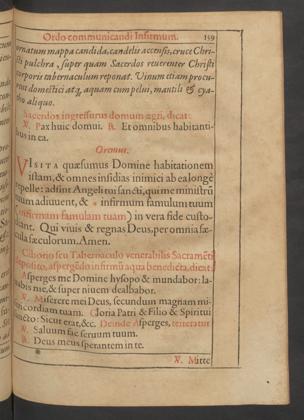 Ordo communicandi Infirmum. 159
ornatum mappa candida, candelis accensis, cruce Chri-
sti pulchra, super quam Sacerdos reuerenter Christi
corporis tabernaculum reponat. Vinum etiam procu-
domestici atq; aquam cum pelui, mantili & cya-
aliquo.
Sacerdos ingressurus domum ægri, dicat:
℣. Pax huic domui. ℟. Et omnibus habitanti-
bus in ea.
Oremus.
VISITA quæsumus Domine habitationem
istam, & omnes insidias inimici ab ea longè
repelle: adsint Angeli tui sancti, qui me ministrũ
tuum adiuuent, & * infirmum famulum tuum
(infirmam famulam tuam) in vera fide custo-
diant. Qui viuis & regnas Deus, per omnia sæ-
cula sæculorum. Amen.
Ciborio seu Tabernaculo venerabilis Sacramẽti
deposito, aspergẽdo infirmũ aqua benedicta, dicat:
Asperges me Domine hysopo & mundabor: la-
uabis me, & super niuem dealbabor.
℣. Miserere mei Deus, secundum magnam mi-
sericordiam tuam. Gloria Patri & Filio & Spiritui
sancto: Sicut erat, &c. Deinde Asperges, iteratur
℣. Saluum fac seruum tuum.
℟. Deus meus sperantem in te.
℣. Mitte